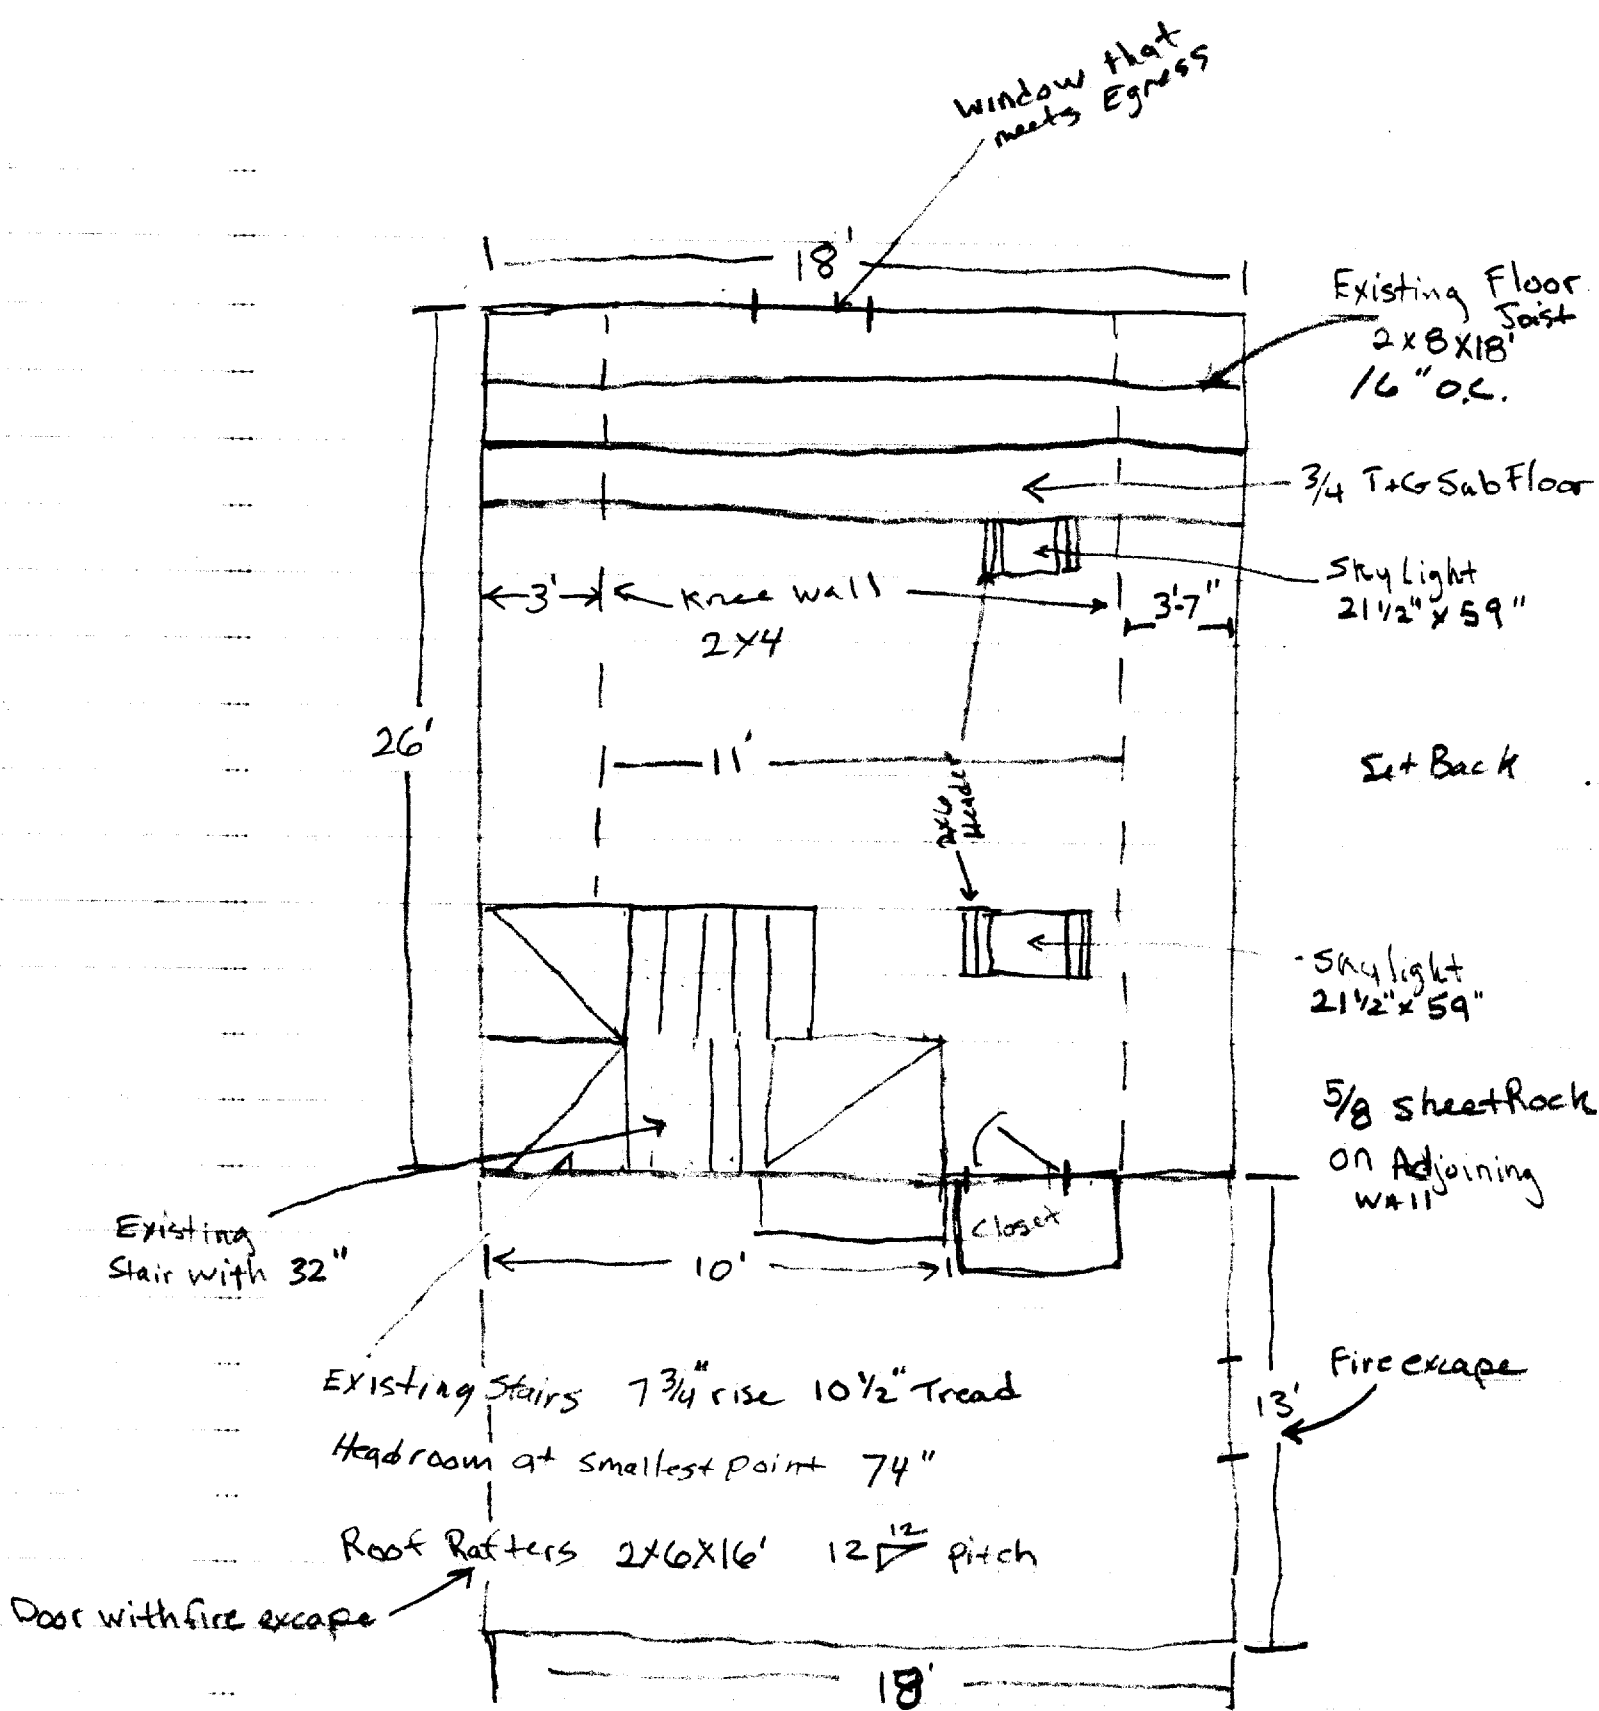 Window that
meets Egress
18'
Existing Floor
Joist
2x8x18'
16" O.C.
3/4 T+G SubFloor
Skylight
21 1/2" x 59"
3'
Knee Wall
2x4
3'-7"
26'
11'
2x6
Header
Set Back
Skylight
21 1/2" x 59"
5/8 SheetRock
on Adjoining
Wall
Closet
Existing
Stair with 32"
10'
Existing Stairs 7 3/4" rise 10 1/2" Tread
Headroom at smallest point 74"
Roof Rafters 2x6x16' 12 12 pitch
Fire excape
13'
Door with fire excape
18'